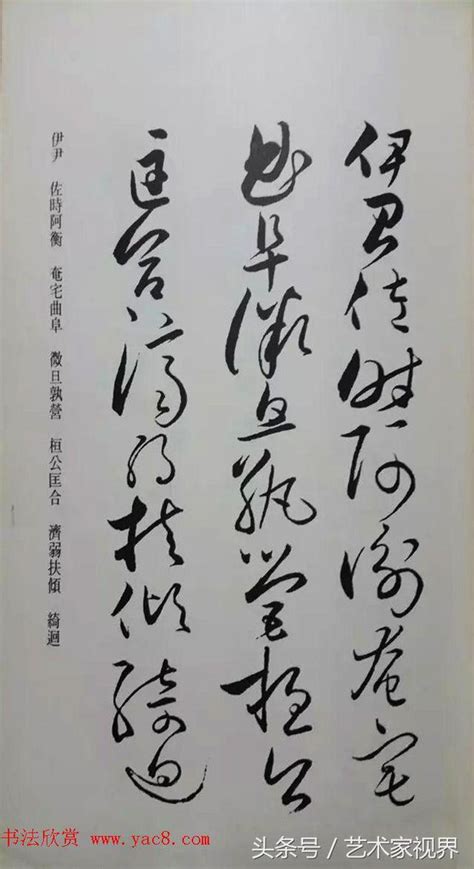 伊尹佐時阿衡奄宅
曲阜微旦孰營桓公
匡合濟弱扶傾綺迴
伊尹 佐時阿衡 奄宅曲阜 微旦孰營 桓公匡合 濟弱扶傾 綺迴
书法欣赏 www.yac8.com
头条号/艺术家视界